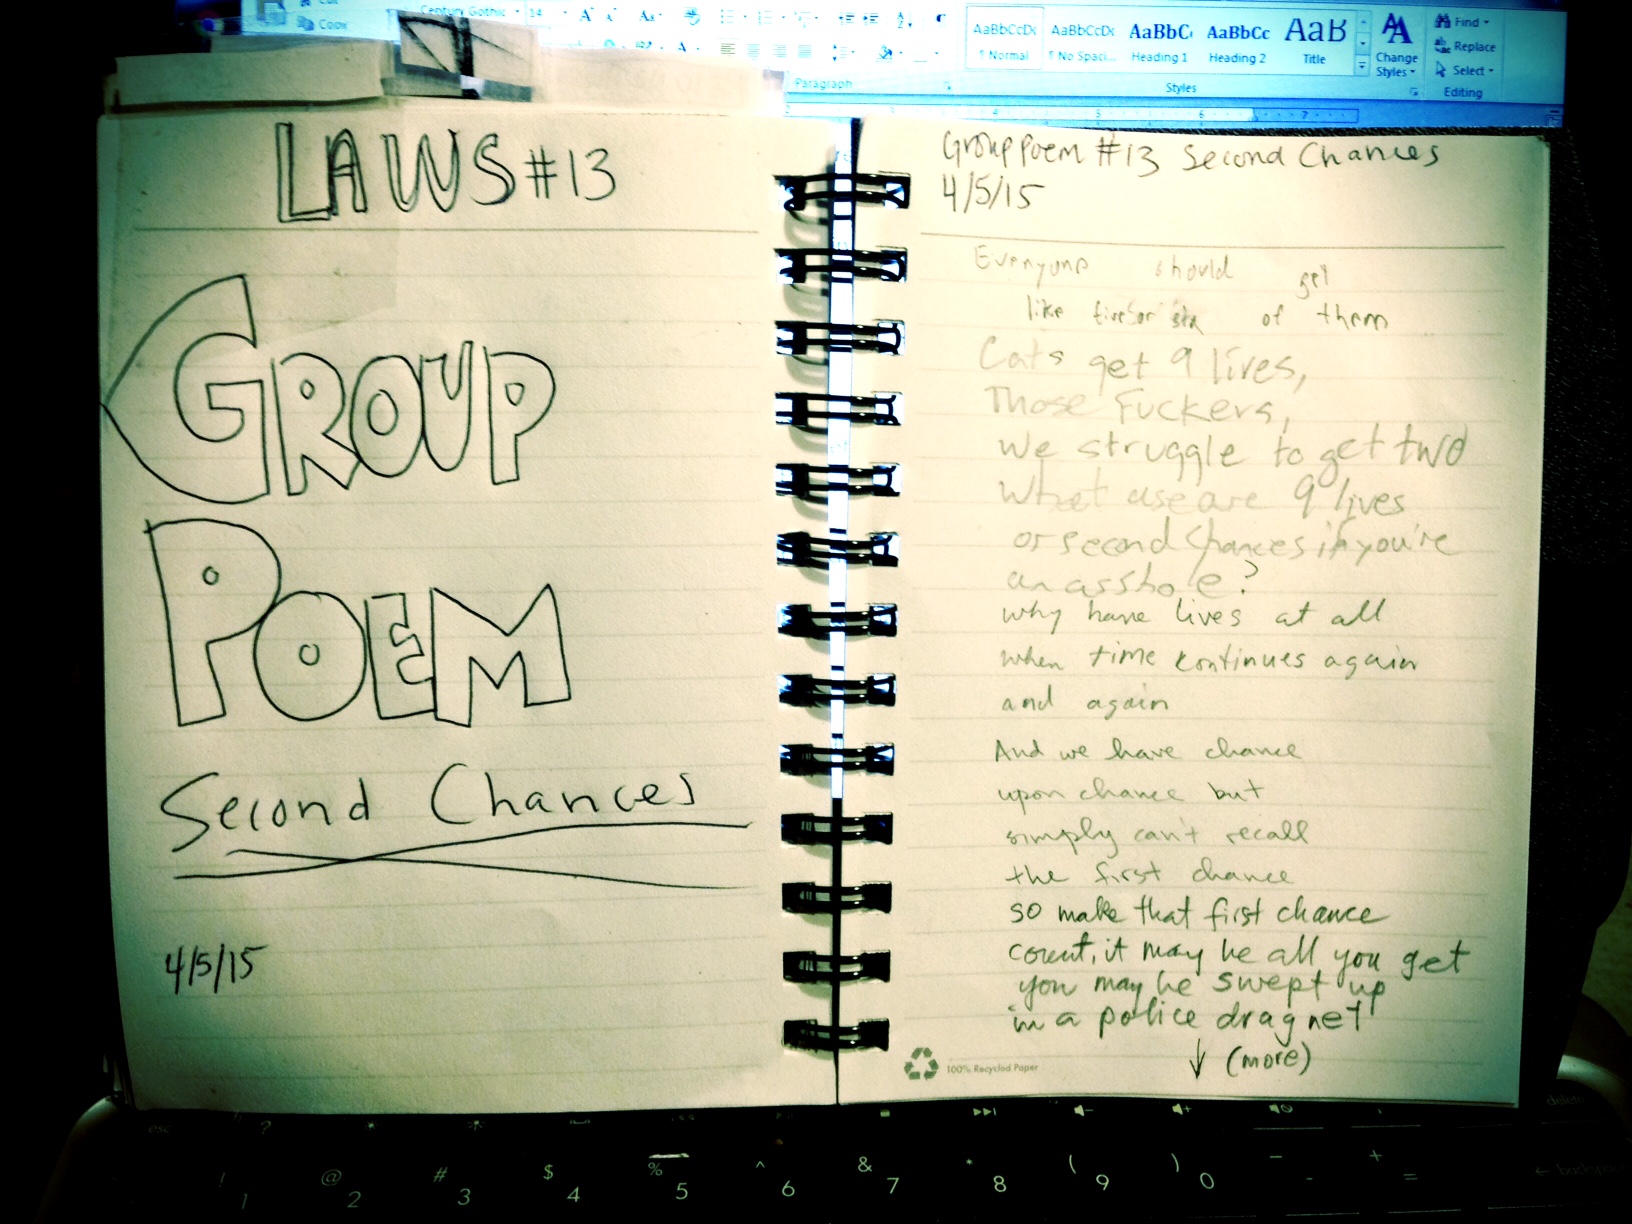 Copy
Century Gothic
14
AaBbCcDc
AaBbCcDc
AaBbC
AaBbCc
AaB
¶ Normal
¶ No Spaci...
Heading 1
Heading 2
Title
Change
Styles
Find
Replace
Select
Paragraph
Styles
Editing
4 5 6 7
LAWS #13
GROUP
POEM
Second Chances
4/5/15
Group Poem #13 Second Chances
4/5/15
Everyone should get
like five or six of them
Cats get 9 lives,
Those Fuckers,
we struggle to get two
What use are 9 lives
or second chances if you're
an asshole?
why have lives at all
when time continues again
and again
And we have chance
upon chance but
simply can't recall
the first chance
so make that first chance
count, it may be all you get
you may be swept up
in a police dragnet
↓ (more)
100% Recycled Paper
esc
delete
! @ # $ % ^ & * ( ) - +
1 2 3 4 5 6 7 8 9 0 - =
← backspace